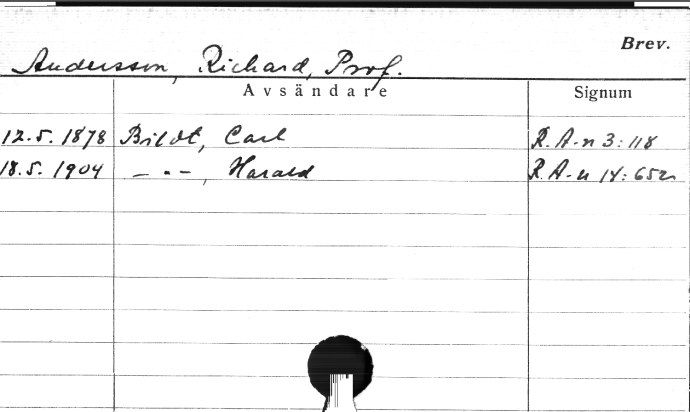 Brev.
Andersson, Richard, Prof.
Avsändare Signum
12.5. 1878 Bildt, Carl R.A-n 3:118
18.5. 1904 — " —, Harald R.A-n 14:652